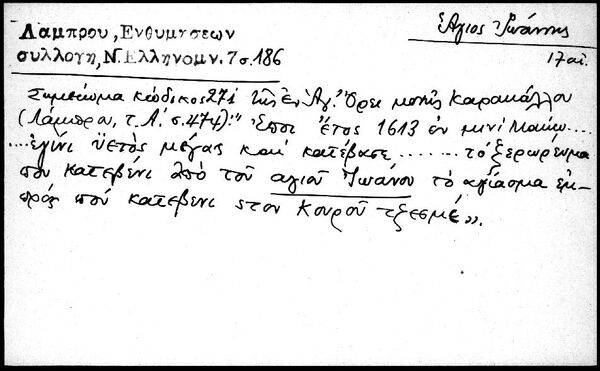 Λάμπρου, Ενθυμήσεων
συλλογή, Ν. Ελληνομν. 7 σ. 186
Ἅγιος Ἰωάννης
17 αἰ.
Σημείωμα κώδικος 271 τῆς ἐν Ἁγ. Ὄρει μονῆς Καρακάλλου
(Λάμπρου, τ. Α΄. σ. 474): "Ἔποι ἔτος 1613 ἐν μινί Μαΐω....
....ἐγίνι ὑετὸς μέγας καί κατέβασε........ τὸ ξερωρέυμα
που κατεβένι ἀπὸ τοῦ ἁγίου Ἰωάνου τὸ ἁγίασμα ἐμ-
πρός πού κατεβένι στον Κουροῦ τζεσμέ».